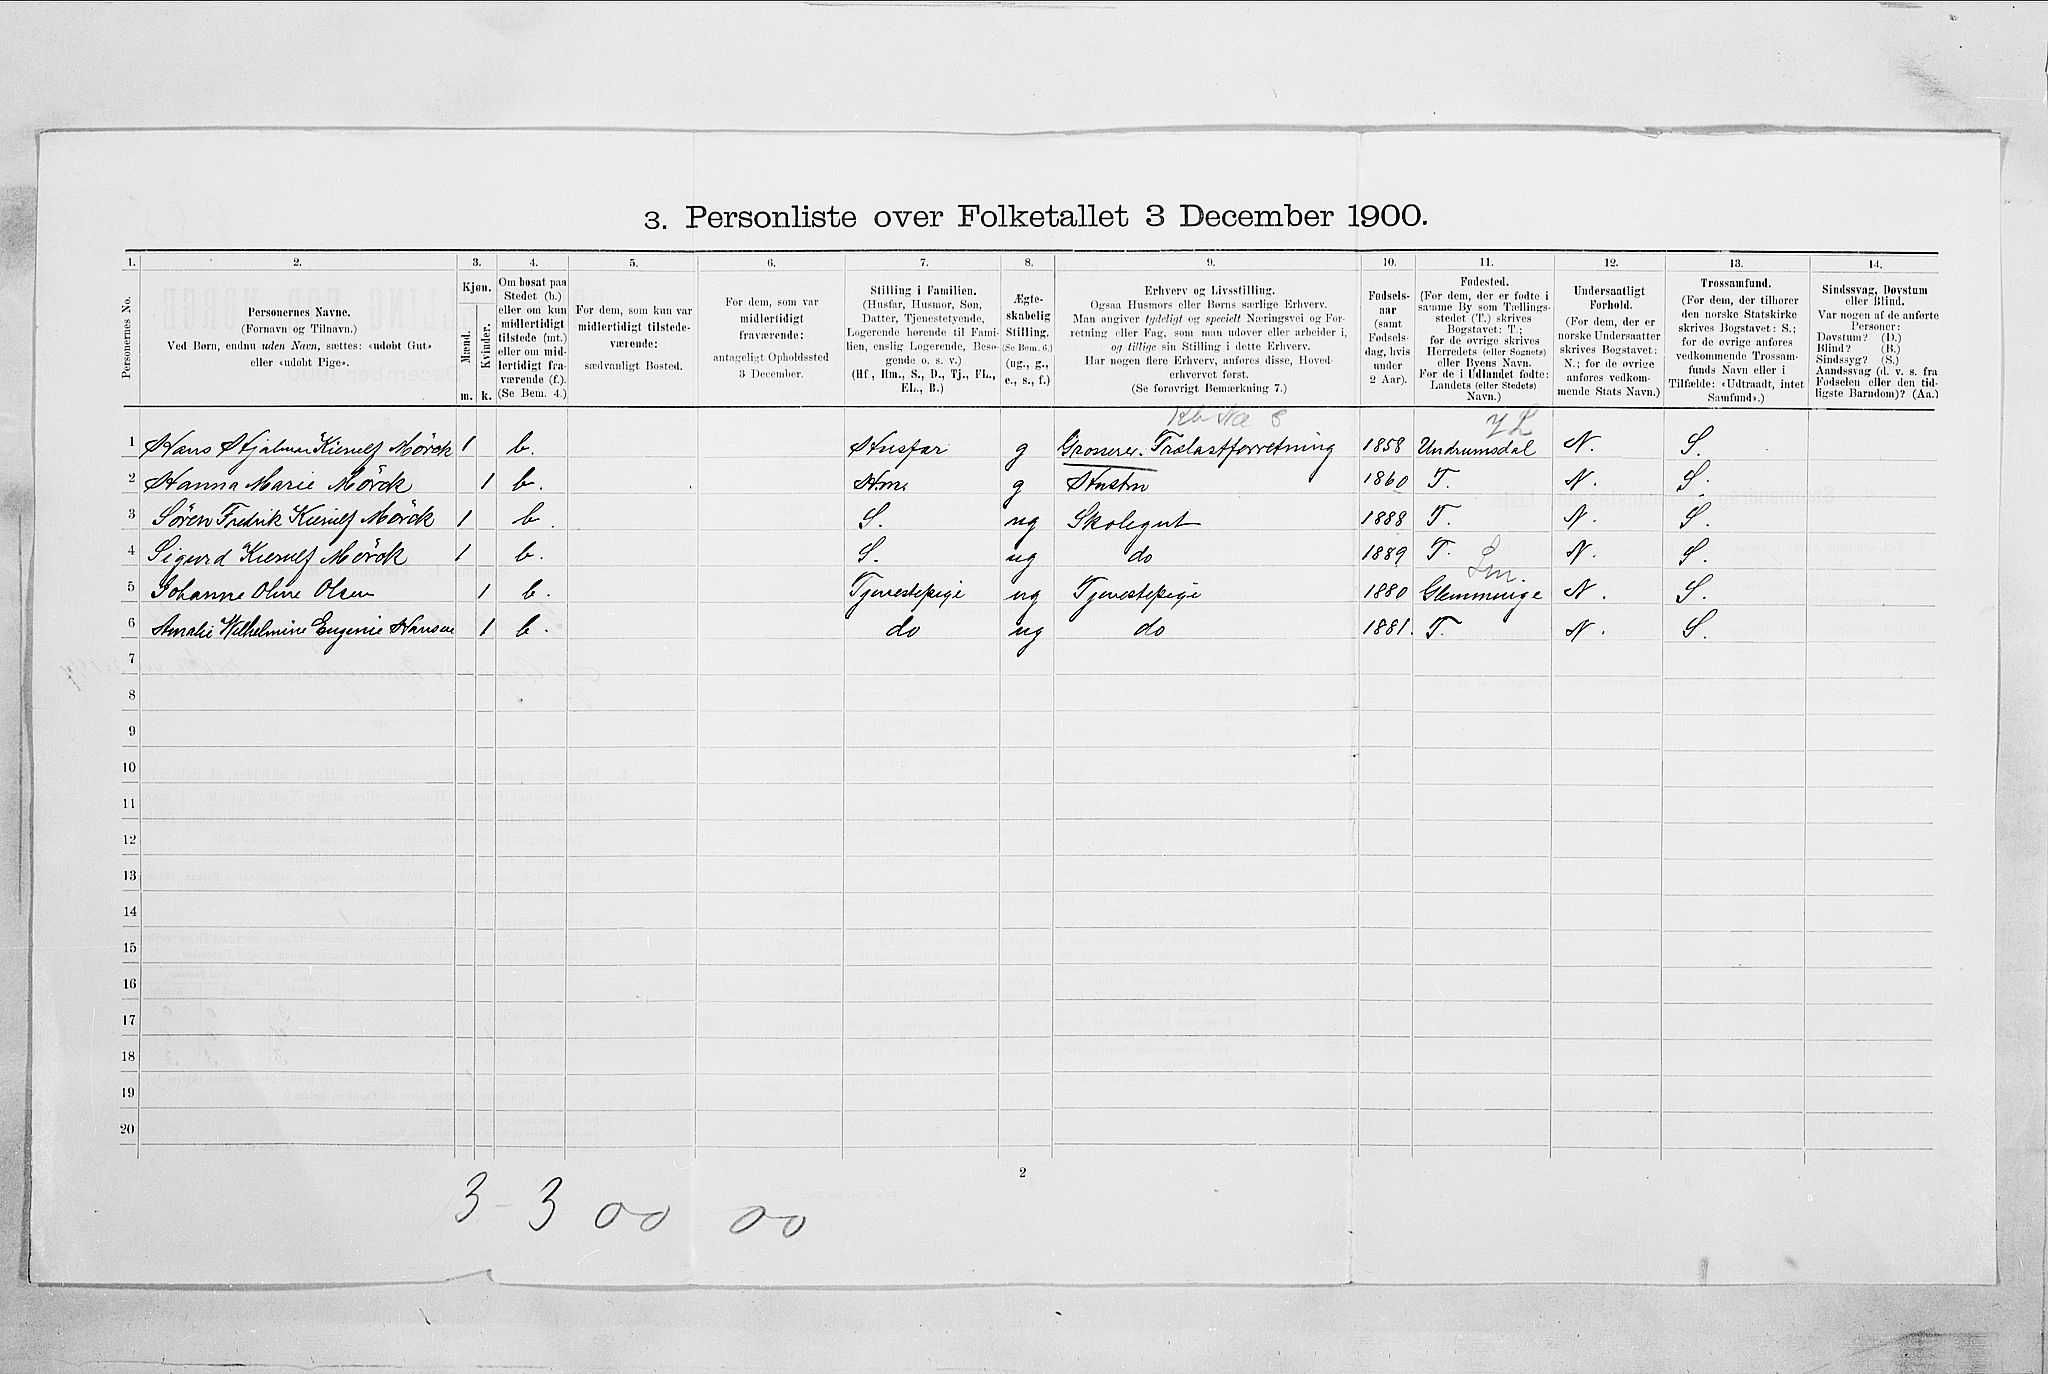 3. Personliste over Folketallet 3 December 1900.
1. 2. 3. 4. 5. 6. 7. 8. 9. 10. 11. 12. 13. 14.
Personernes No.
Personernes Navne.
(Fornavn og Tilnavn.)
Ved Børn, endnu uden Navn, sættes: «udøbt Gut»
eller «udøbt Pige».
Kjøn.
Mænd.
Kvinder.
m. k.
Om bosat paa
Stedet (b.)
eller om kun
midlertidigt
tilstede (mt.)
eller om mid-
lertidigt fra-
værende (f.).
(Se Bem. 4.)
For dem, som kun var
midlertidigt tilstede-
værende:
sædvanligt Bosted.
For dem, som var
midlertidigt
fraværende:
antageligt Opholdssted
3 December.
Stilling i Familien.
(Husfar, Husmor, Søn,
Datter, Tjenestetyende,
Logerende hørende til Fami-
lien, enslig Logerende, Besø-
gende o. s. v.)
(Hf, Hm., S., D., Tj., FL.,
EL., B.)
Ægte-
skabelig
Stilling.
(Se Bem. 6.)
(ug., g.,
e., s., f.)
Erhverv og Livsstilling.
Ogsaa Husmors eller Børns særlige Erhverv.
Man angiver tydeligt og specielt Næringsvei og For-
retning eller Fag, som man udøver eller arbeider i,
og tillige sin Stilling i dette Erhverv.
Har nogen flere Erhverv, anføres disse, Hoved-
erhvervet først.
(Se forøvrigt Bemærkning 7.)
Fødsels-
aar
(samt
Fødsels-
dag, hvis
under
2 Aar).
Fødested.
(For dem, der er fødte i
samme By som Tællings-
stedet (T.) skrives
Bogstavet: T.;
for de øvrige skrives
Herredets (eller Sognets)
eller Byens Navn.
For de i Udlandet fødte:
Landets (eller Stedets)
Navn.)
Undersaatligt
Forhold.
(For dem, der er
norske Undersaatter
skrives Bogstavet:
N.; for de øvrige
anføres vedkom-
mende Stats Navn.)
Trossamfund.
(For dem, der tilhører
den norske Statskirke
skrives Bogstavet: S.;
for de øvrige anføres
vedkommende Trossam-
funds Navn eller i
Tilfælde: «Udtraadt, intet
Samfund».)
Sindssvag, Døvstum
eller Blind.
Var nogen af de anførte
Personer:
Døvstum? (D.)
Blind? (B.)
Sindssyg? (S.)
Aandssvag (d. v. s. fra
Fødselen eller den tid-
ligste Barndom)? (Aa.)
1 Hans Hjalmar Kierulf Mörck 1 b. Husfar g Grosserer. Trælastforretning 1858 Undrumsdal N. S.
2 Hanna Marie Mörck 1 b. Hm. g Hustru 1860 T. N. S.
3 Sören Fredrik Kierulf Mörck 1 b. S. ug Skolegut 1888 T. N. S.
4 Sigurd Kierulf Mörck 1 b. S. ug do 1889 T. N. S.
5 Johanne Oline Olsen 1 b. Tjenestepige ug Tjenestepige 1880 Glemminge N. S.
6 Amalie Wilhelmine Eugenie Hansen 1 b. do ug do 1881. T. N. S.
7
8
9
10
11
12
13
14
15
16
17
18
19
20
2
3 - 3 00 00